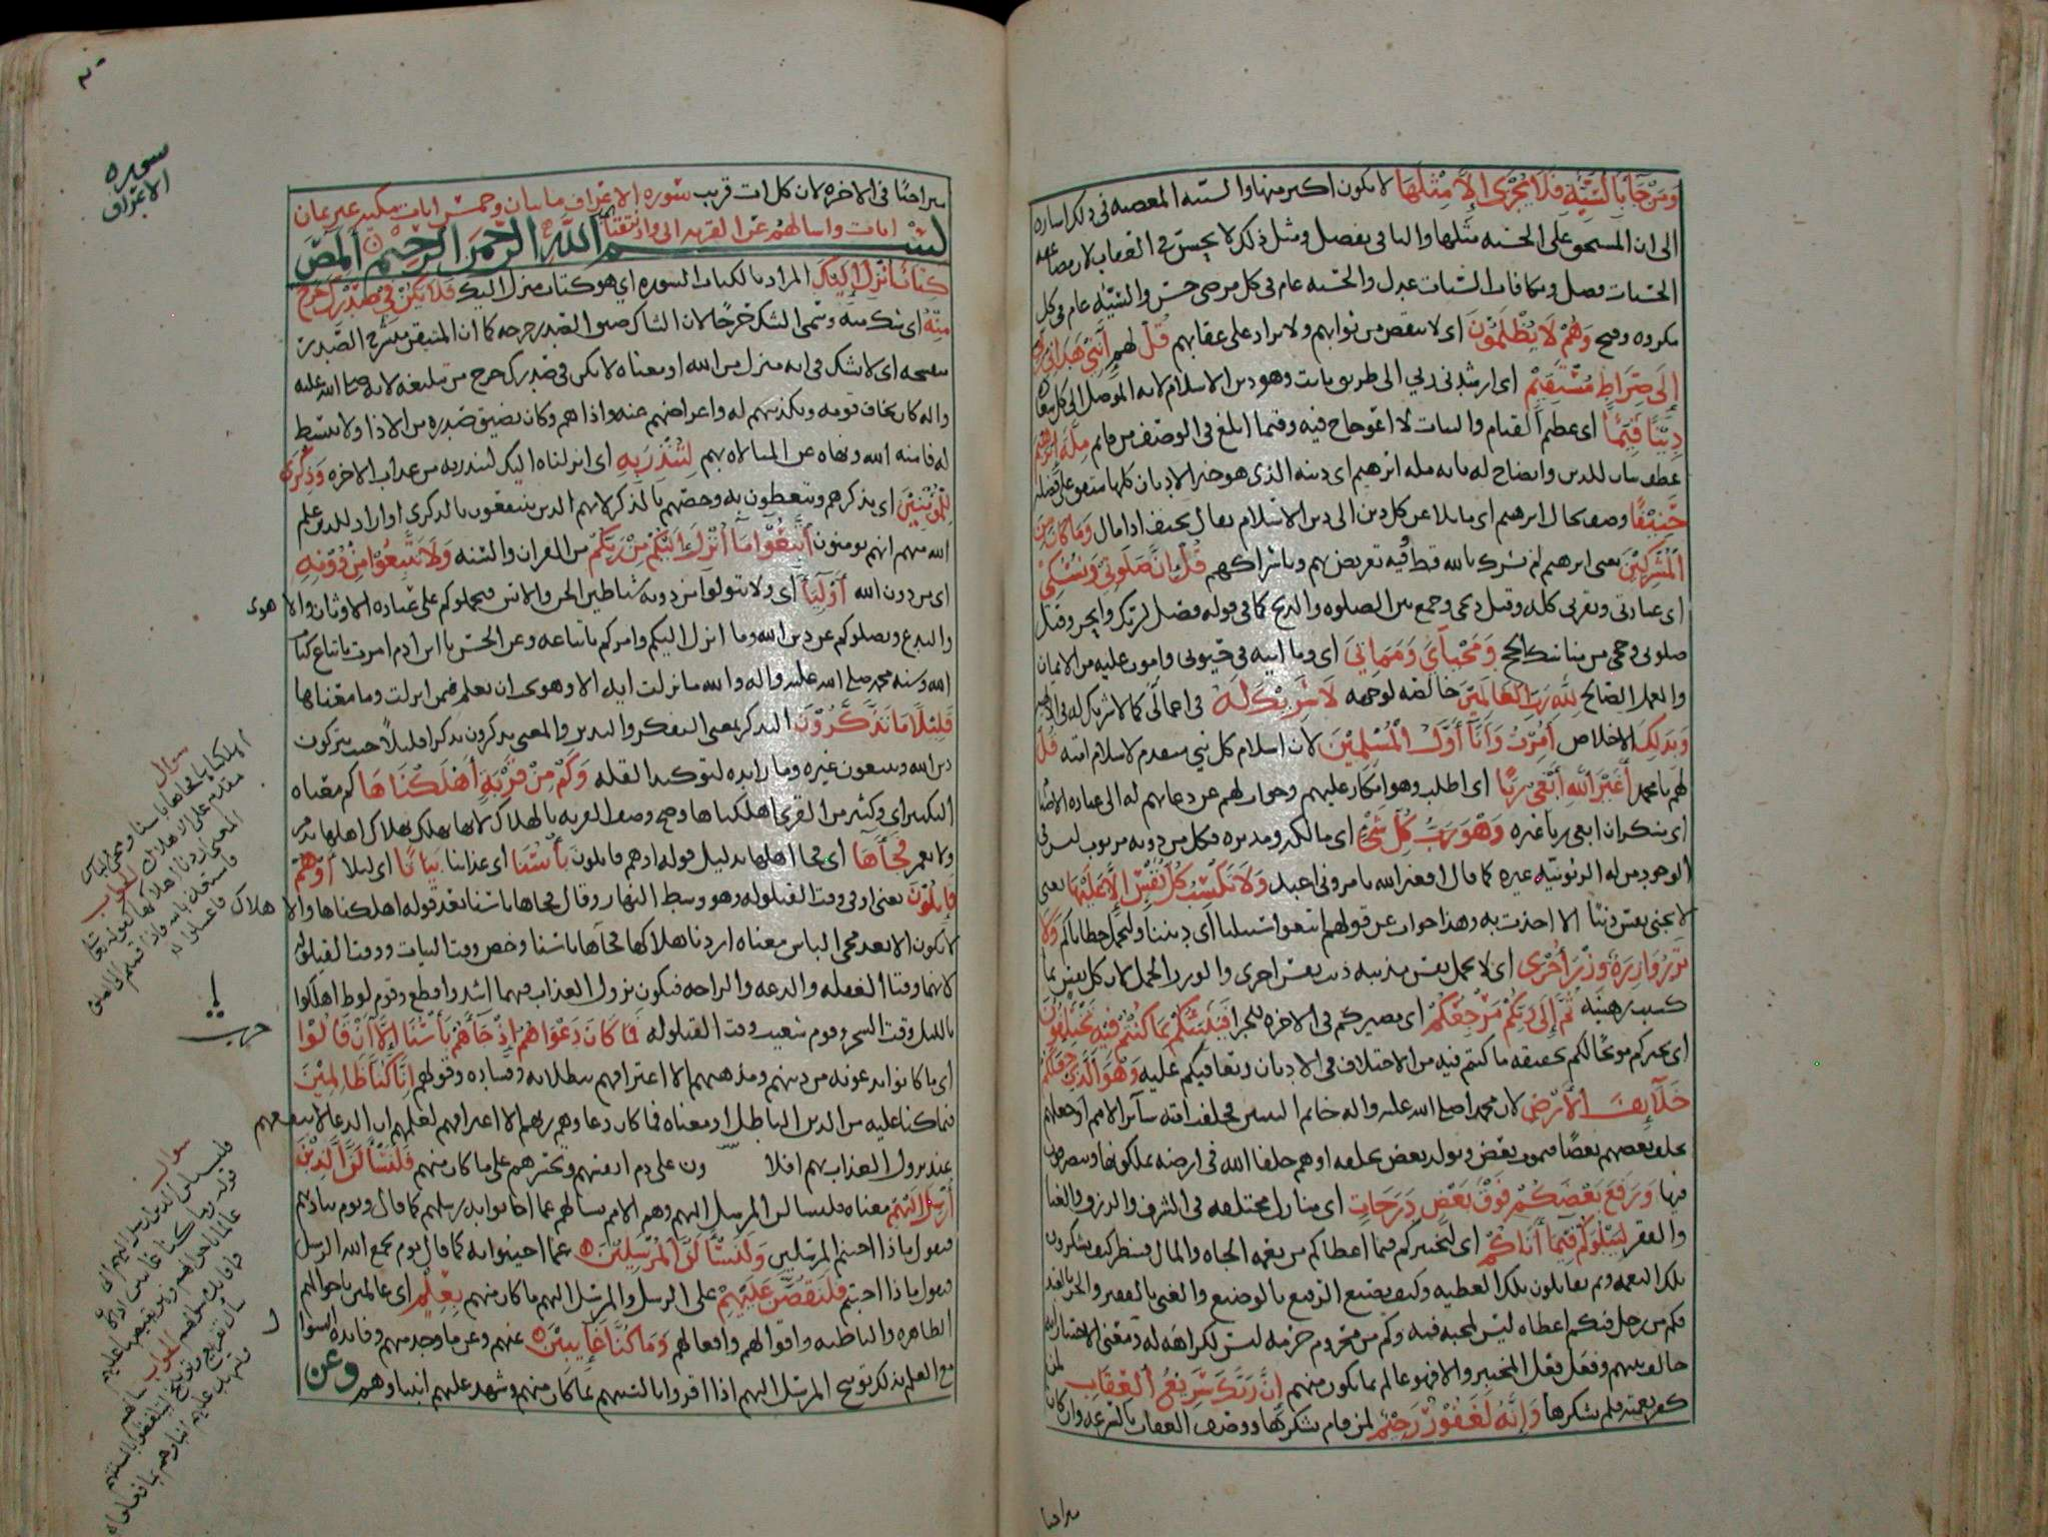 ومن جا بالسيئه فلا يجزى الا مثلها لا يكون اكبر منها والسيئه المعصيه في ذلك اشاره
الى ان المستحق على الحسنه مثلها والباقي تفضل ومثل ذلك لا يحسن في العقاب لان مضاعفه
الحسنات فضل ومكافات السيات عدل والحسنه عام في كل مرضي حسن والسيئه عام في كل
مكروه وقبيح وهم لا يظلمون اى لا ينقص من ثوابهم ولا يزاد على عقابهم قل لهم انني هداني ربي
الى صراط مستقيم اى ارشدني ربي الى طريق ثابت وهو دين الاسلام لانه الموصل الى كل سعاده
دينا قيما اى عظيم القيام والثبات لا اعوجاج فيه وقيما ابلغ في الوصف من قايم مله ابرهيم
عطف بيان للدين وايضاح له بانه مله ابرهيم اى دينه الذى هو خير الاديان كلها متفق على فضله
حنيفا وصف لحال ابرهيم اى مايلا عن كل دين الى دين الاسلام يقال تحنف اذا مال وما كان من
المشركين يعني ابرهيم لم يشرك بالله قط فيه تعريض بهم وباشراكهم قل ان صلوتي ونسكي
اى عبادتي وتقربي كله وقيل ذبحي وجمع بين الصلوه والذبح كما في قوله فصل لربك وانحر وقيل
صلوتي وحجي من مناسك الحج ومحياي ومماتي اى وما اتيه في حيوتي واموت عليه من الايمان
والعمل الصالح لله رب العالمين خالصه لوجهه لا شريك له في اعمالي كما لا شريك له في
وبذلك الاخلاص امرت وانا اول المسلمين لان اسلام كل نبي متقدم لاسلام امته قل
لهم يا محمد اغير الله ابغي ربا اى اطلب وهو انكار عليهم وجواب لهم عن دعايهم له الى عباده
اى منكر ان ابغي ربا غيره وهو رب كل شي اى مالكه ومدبره فكل من دونه مربوب ليس في
الوجود من له الربوبيه غيره كما قال افغير الله تامروني اعبد ولا تكسب كل نفس الا عليها يعني
لا تجني نفس ذنبا الا اخذت به وهذا جواب عن قولهم اتبعوا سبيلنا اى ديننا ولنحمل خطاياكم ولا
تزر وازره وزر اخرى اى لا تحمل نفس مذنبه ذنب نفس اخرى والوزر الحمل لان كل نفس بما
كسبت رهينه ثم الى ربكم مرجعكم اى مصيركم في الاخره للجزا فينبئكم بما كنتم فيه تختلفون
اى يخبركم موبخا لكم بحقيقه ما كنتم فيه من الاختلاف في الاديان ويعاقبكم عليه وهو الذي جعلكم
خلايف الارض لان محمدا صلى الله عليه واله خاتم النبيين فخلفت امته ساير الامم او جعلهم
يخلف بعضهم بعضا فيموت بعض ويولد بعض يخلفه او هم خلفا الله في ارضه يملكونها ويتصرفون
فيها ورفع بعضكم فوق بعض درجات اى منازل مختلفه في الشرف والرزق والغنا
والفقر ليبلوكم فيما اتاكم اى ليختبركم فيما اعطاكم من نعمه الجاه والمال فينظر كيف يشكرون
تلك النعمه وبم يقابلون تلك العطيه وكيف يصنع الرفيع بالوضيع والغني بالفقير والحر بالعبد
فكم من رجل فيكم اعطاه ليس لمحبه فيه وكم من محروم حرمه ليس لكراهه له ومعنى الاختبار
خالف بينهم وفعل فعل المختبر والا فهو عالم بما يكون منهم ان ربك سريع العقاب لمن
كفر نعمته فلم يشكرها وانه لغفور رحيم لمن قام بشكرها ووصف العقاب بالسرعه وان كان
متراخيا
سوره
الاعراف
متراخيا في الاخره لان كل ات قريب سوره الاعراف مايتان وخمس ايات مكيه غير ثمان
ايات واسالهم عن القريه الى واذ نتقنا
بسم الله الرحمن الرحيم المص
كتاب انزل اليك المراد بالكتاب السوره اى هو كتاب منزل اليك فلا يكن في صدرك حرج
منه اى شك منه وسمى الشك حرجا لان الشاك ضيق الصدر حرجه كما ان المتيقن منشرح الصدر
منفسحه اى لا تشك في انه منزل من الله او معناه لا يكن في صدرك حرج من تبليغه لانه صلى الله عليه
واله كان يخاف قومه وتكذيبهم له واعراضهم عنه واذاهم وكان يضيق صدره من الاذا ولا ينبسط
له فامنه الله ونهاه عن المبالاه بهم لتنذر به اى انزلناه اليك لتنذر به من عذاب الاخره وذكرى
للمومنين اى يذكرهم ويتعظون به وخصهم بالذكر لانهم الذين ينتفعون بالذكرى او اراد للذين علم
الله منهم انهم يومنون اتبعوا ما انزل اليكم من ربكم من القران والسنه ولا تتبعوا من دونه
اى من دون الله اوليا اى ولا تتولوا من دونه شياطين الجن والانس فيحملوكم على عباده الاوثان والاهوى
والبدع ويضلوكم عن دين الله وما انزل اليكم وامركم باتباعه وعن الحسن يا ابن ادم امرت باتباع كتاب
الله وسنه محمد صلى الله عليه واله والله ما نزلت ايه الا وهو يحب ان تعلم فيمن انزلت وما معناها
قليلا ما تذكرون التذكر بمعنى التفكر والتدبر والمعنى يذكرون تذكرا قليلا حيث يتركون
دين الله ويتبعون غيره وما زايده لتوكيد القله وكم من قريه اهلكناها كم معناه
التكثير اى وكثير من القرى اهلكناها وصح وصف القريه بالهلاك لانها تهلك بهلاك اهلها
ولا تعمر فجاها اى فجا اهلها بدليل قوله او هم قايلون باسنا اى عذابنا بياتا اى ليلا او هم
قايلون يعني او في وقت القيلوله وهو وسط النهار وقال فجاها باسنا بعد قوله اهلكناها والاهلاك
لا يكون الا بعد مجي الباس معناه اردنا هلاكها فجاها باسنا وخص وقت البيات ووقت القيلوله
لانهما وقتا الغفله والدعه والراحه فيكون نزول العذاب فيهما اشد وافظع وقوم لوط اهلكوا
بالليل وقت السحر وقوم شعيب وقت القيلوله فما كان دعواهم اذ جاهم باسنا الا ان قالوا
اى ما كانوا يدعونه من دينهم ومذهبهم الا اعترافهم ببطلانه وفساده وقولهم انا كنا ظالمين
فيما كنا عليه من الدين الباطل او معناه فما كان دعاوهم ربهم الا اعترافهم لعلمهم ان الدعا لا ينفعهم
عند نزول العذاب بهم فلا ون على ذم انفسهم وتحسرهم على ما كان منهم فلنسالن الذين
ارسل اليهم معناه فلنسالن المرسل اليهم وهم الامم نسالهم عما اجابوا به رسلهم كما قال ويوم يناديهم
فيقول ماذا اجبتم المرسلين ولنسالن المرسلين عما اجيبوا به كما قال يوم يجمع الله الرسل
فيقول ماذا اجبتم فلنقصن عليهم على الرسل والمرسل اليهم ما كان منهم بعلم اى عالمين باحوالهم
الظاهره والباطنه واقوالهم وافعالهم وما كنا غايبين عنهم وعن ما وجد منهم وفايده السوال
مع العلم بذلك توبيخ المرسل اليهم اذا اقروا بالسنتهم بما كان منهم وشهد عليهم انبياوهم وعن
سوال
اهلكناها فجاها باسنا ومجي الباس
مقدم على الاهلاك الجواب
المعنى اردنا اهلاكها كقوله تعالى
فاستعذ بالله فاذا قمتم الى الصلوه
فاغسلوا
حزب
سوال
قوله وما كنا غايبين
الجواب